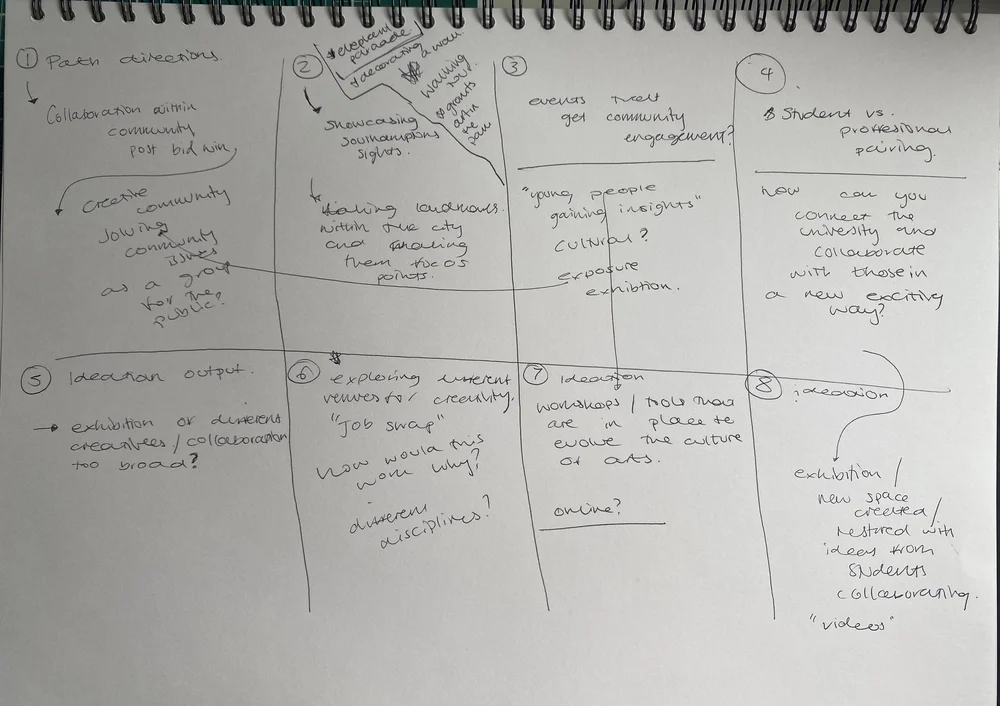 ① Path directions.
Collaboration within
community
post bid win,
creative
community
community
issues
as a group
for the
public?
②
elephant
parade
decorating
a wall
walking
tour
giants
art in
the
Showcasing
Southamptons
sights.
taking landmarks
within the city
and making
them focos
points.
③
events that
get community
engagement?
"young people
gaining insights"
cultural?
exposure
exhibtion.
④
Student vs.
proffessional
pairing.
how can you
connect the
university and
collaborate
with those in
a new exciting
way?
⑤ Ideation output.
exhibition or different
creatives / collaboration
too broad?
⑥ exploring different
venues for creativity.
"Job swap"
how would this
work why?
different
disciplines?
⑦ Ideation
workshops / tools that
are in place to
evolve the culture
of arts.
online?
⑧ ideation
exhibition /
new space
created /
restored with
ideas from
students
collaborating.
"videos"